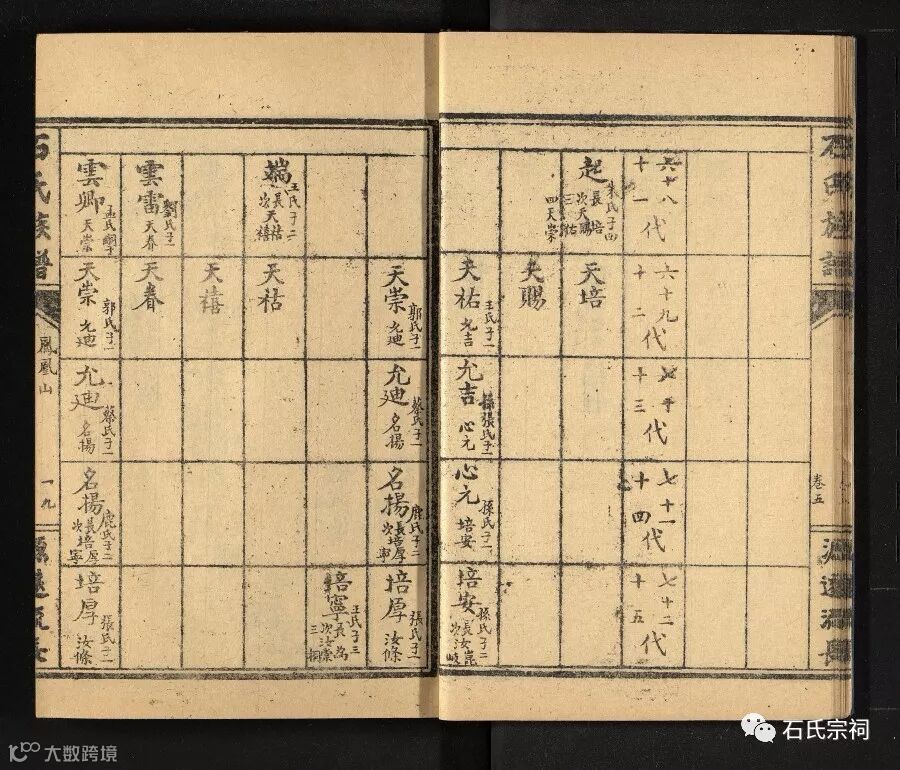 石氏族譜
卷五
源遠流長
六十八
十一代
六十九代
十二
七十代
十三
七十一代
十四
七十二代
十五
起
朱氏子四
長天培
次天賜
三天祐
四天崇
天培
天賜
天祐
王氏子一
允吉
允吉
孫張氏子一
心元
心元
孫氏子一
培安
培安
孫氏子二
長汝崑
次汝岐
天崇
郭氏子一
允迪
允迪
蔡氏子一
名揚
名揚
鹿氏子二
長培厚
次培寧
培厚
張氏子一
汝條
培寧
王氏子三
端
王氏子二
長天祜
次天禧
天祜
天禧
雲雷
劉氏子一
天春
天春
雲卿
孟氏嗣子
天崇
天崇
郭氏子一
允迪
允迪
蔡氏子一
名揚
名揚
鹿氏子二
長培厚
次培寧
培厚
張氏子一
汝條
石氏族譜
鳳凰山
一九
源遠流長
石氏宗祠
大数跨境